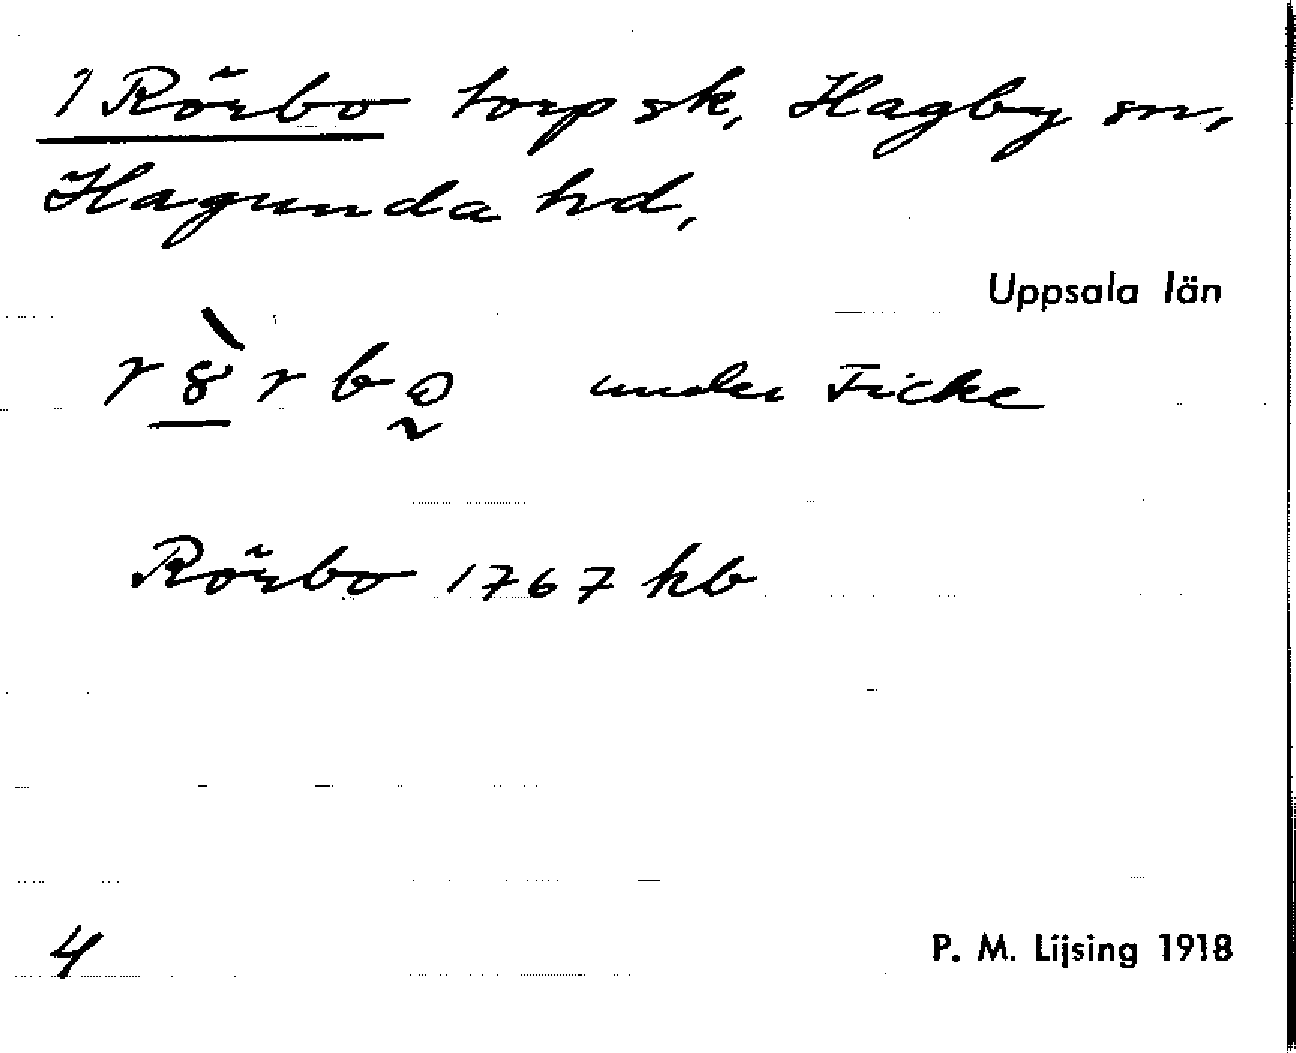 1 Rörbo torp sk, Hagby sn,
Hagunda hd,
Uppsala län
under Ficke
Rörbo 1767 kb
4
P. M. Lijsing 1918